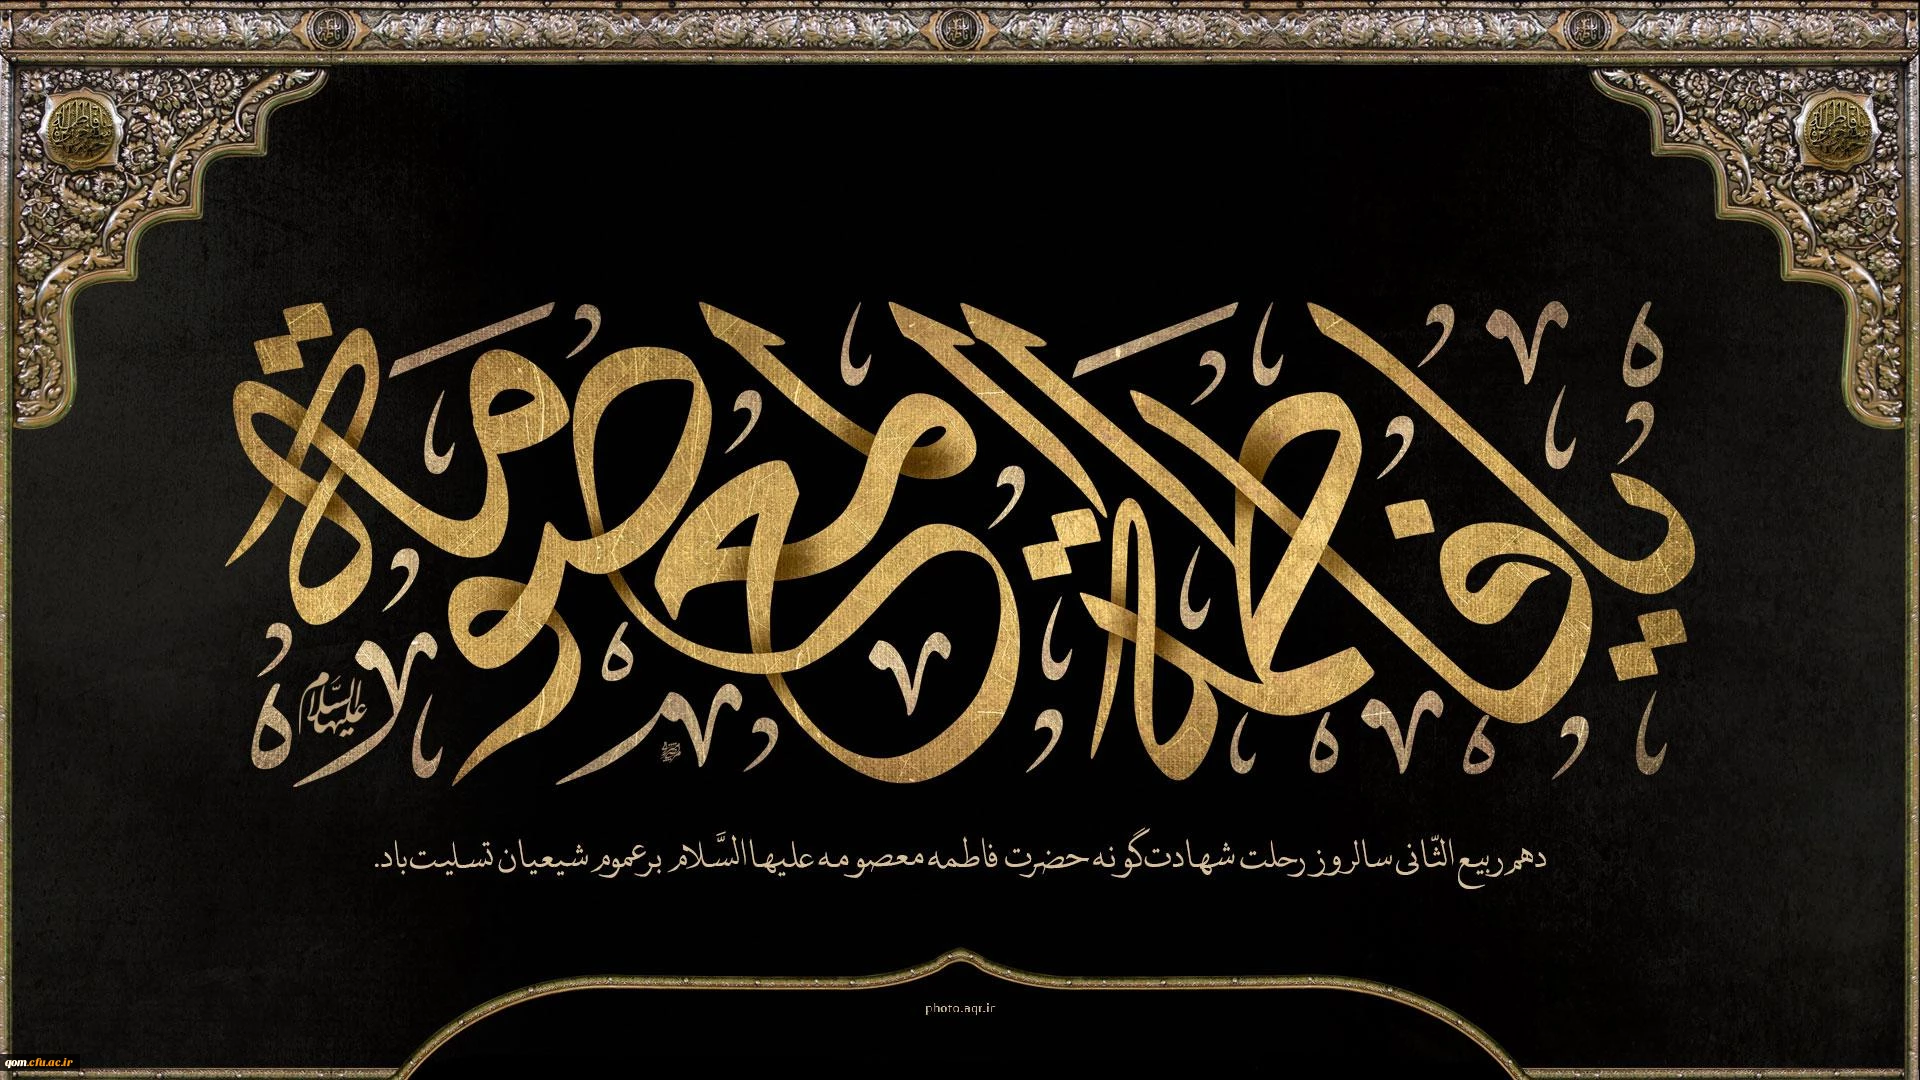 یا فاطمة المعصومة
علیها السَّلام
دهم ربیع الثّانی سالروز رحلت شهادت‌گونه حضرت فاطمه معصومه علیها السَّلام بر عموم شیعیان تسلیت باد.
photo.aqr.ir
qom.cfu.ac.ir